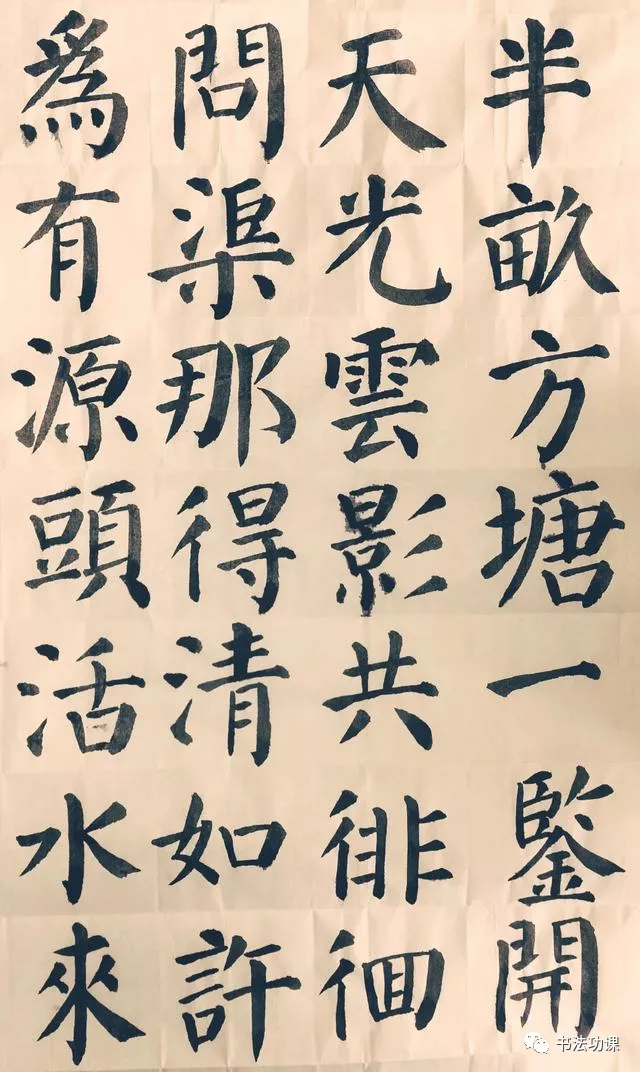 半畝方塘一鍳開
天光雲影共徘徊
問渠那得清如許
爲有源頭活水來
书法功课